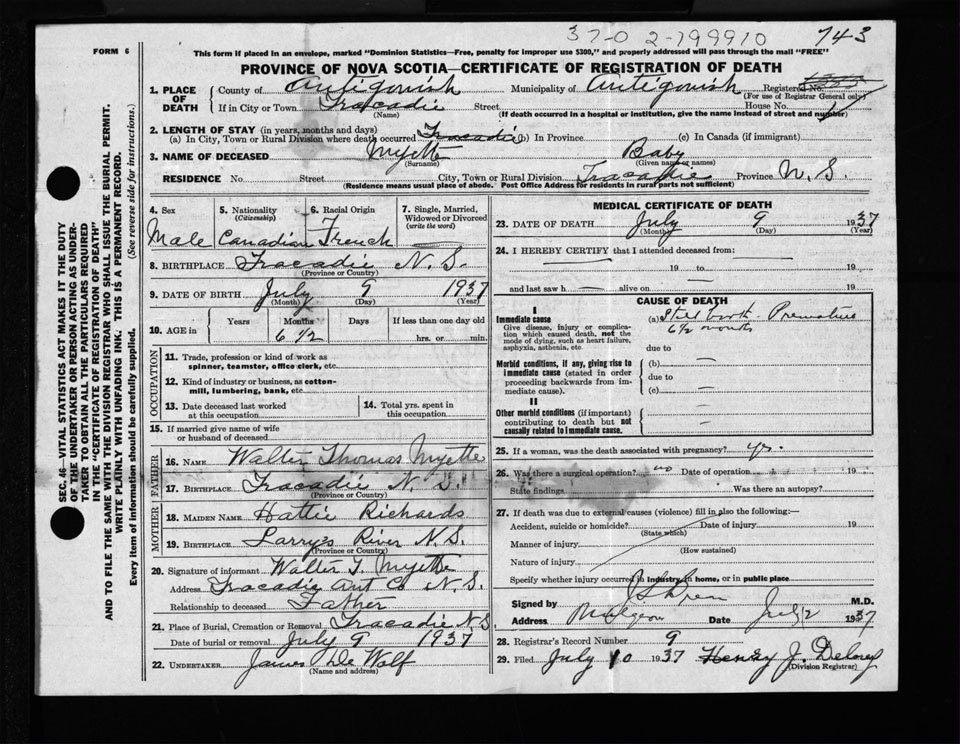 37-0 2-199910
743
FORM 6
This form if placed in an envelope, marked "Dominion Statistics—Free, penalty for improper use $300," and properly addressed will pass through the mail "FREE"
PROVINCE OF NOVA SCOTIA—CERTIFICATE OF REGISTRATION OF DEATH
1. PLACE OF DEATH County of Antigonish Municipality of Antigonish Registered No.
(For use of Registrar General only)
If in City or Town Tracadie Street House No.
(Name) (If death occurred in a hospital or institution, give the name instead of street and number)
2. LENGTH OF STAY (in years, months and days)
(a) In City, Town or Rural Division where death occurred Tracadie (b) In Province (c) In Canada (if immigrant)
3. NAME OF DECEASED Myette Baby
(Surname) (Given name or names)
RESIDENCE No. Street City, Town or Rural Division Tracadie Province N.S.
(Residence means usual place of abode. Post Office Address for residents in rural parts not sufficient)
SEC. 46—VITAL STATISTICS ACT MAKES IT THE DUTY
OF THE UNDERTAKER OR PERSON ACTING AS UNDER-
TAKER TO OBTAIN ALL THE PARTICULARS REQUIRED
IN THE "CERTIFICATE OF REGISTRATION OF DEATH"
AND TO FILE THE SAME WITH THE DIVISION REGISTRAR WHO SHALL ISSUE THE BURIAL PERMIT.
WRITE PLAINLY WITH UNFADING INK. THIS IS A PERMANENT RECORD.
Every item of information should be carefully supplied. (See reverse side for instructions.)
4. Sex 5. Nationality (Citizenship) 6. Racial Origin 7. Single, Married, Widowed or Divorced (write the word)
Male Canadian French
8. BIRTHPLACE Tracadie N.S.
(Province or Country)
9. DATE OF BIRTH July 9 1937
(Month) (Day) (Year)
10. AGE in Years Months Days If less than one day old
6 1/2 hrs. or min.
OCCUPATION
11. Trade, profession or kind of work as
spinner, teamster, office clerk, etc.
12. Kind of industry or business, as cotton-
mill, lumbering, bank, etc.
13. Date deceased last worked at this occupation
14. Total yrs. spent in this occupation
15. If married give name of wife
or husband of deceased
FATHER
16. NAME Walter Thomas Myette
17. BIRTHPLACE Tracadie N.S.
(Province or Country)
MOTHER
18. MAIDEN NAME Hattie Richards
19. BIRTHPLACE Larry's River N.S.
(Province or Country)
20. Signature of informant Walter T. Myette
Address Tracadie Ant Co N.S.
Relationship to deceased Father
21. Place of Burial, Cremation or Removal Tracadie N.S
Date of burial or removal July 9 1937
22. UNDERTAKER James De Wolf
(Name and address)
MEDICAL CERTIFICATE OF DEATH
23. DATE OF DEATH July 9 1937
(Month) (Day) (Year)
24. I HEREBY CERTIFY that I attended deceased from:
19 to 19
and last saw h alive on 19
CAUSE OF DEATH
I
Immediate cause (a) Still birth Premature
6 1/2 months
Give disease, injury or complica-
tion which caused death, not the
mode of dying, such as heart failure,
asphyxia, asthenia, etc.
due to
Morbid conditions, if any, giving rise to
immediate cause (stated in order
proceeding backwards from im-
mediate cause).
(b)
due to
(c)
II
Other morbid conditions (if important)
contributing to death but not
causally related to immediate cause.
25. If a woman, was the death associated with pregnancy? yes
26. Was there a surgical operation? no Date of operation 19
State findings Was there an autopsy?
27. If death was due to external causes (violence) fill in also the following:—
Accident, suicide or homicide? Date of injury 19
(State which)
Manner of injury
(How sustained)
Nature of injury
Specify whether injury occurred in industry, in home, or in public place
Signed by M.D.
Address Mulgrave Date July 12 1937
28. Registrar's Record Number 9
29. Filed July 10 1937 Henry J. Delorey
(Division Registrar)